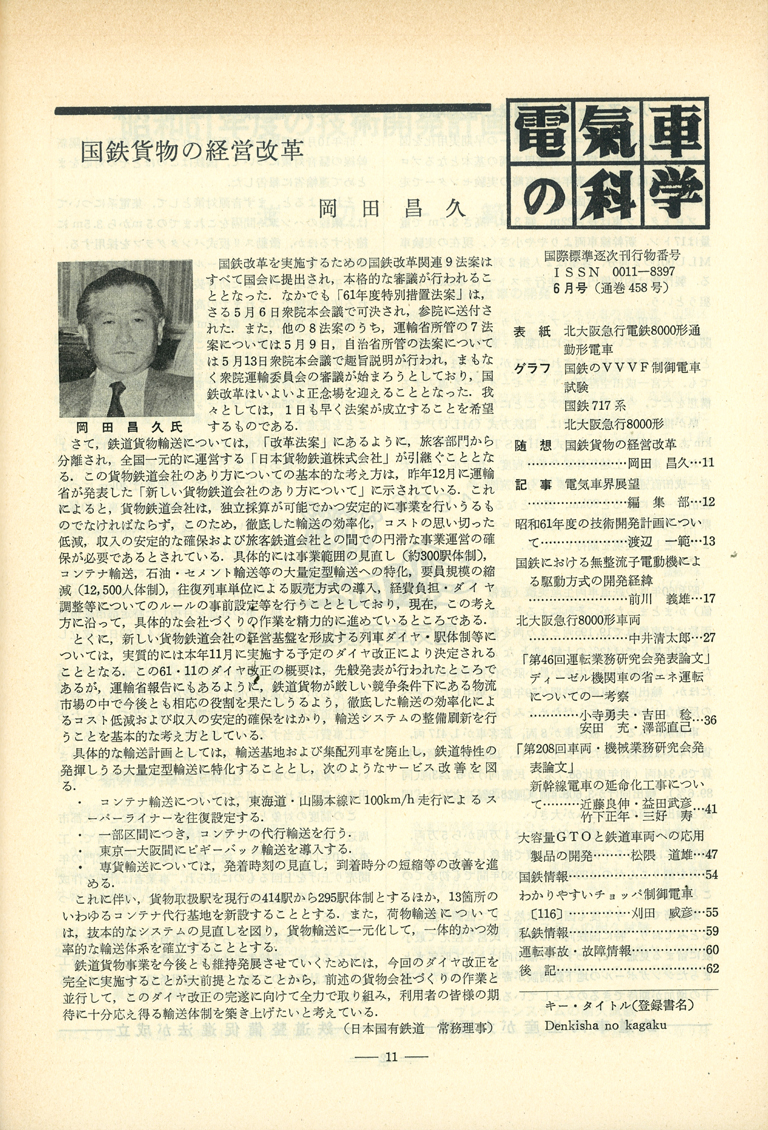 国鉄貨物の経営改革
岡田昌久
国鉄改革を実施するための国鉄改革関連9法案は
すべて国会に提出され，本格的な審議が行われるこ
ととなった．なかでも「61年度特別措置法案」は，
さる5月6日衆院本会議で可決され，参院に送付さ
れた．また，他の8法案のうち，運輸省所管の7法
案については5月9日，自治省所管の法案について
は5月13日衆院本会議で趣旨説明が行われ，まもな
く衆院運輸委員会の審議が始まろうとしており，国
鉄改革はいよいよ正念場を迎えることとなった．我
々としては，1日も早く法案が成立することを希望
するものである．
岡田昌久氏
さて，鉄道貨物輸送については，「改革法案」にあるように，旅客部門から
分離され，全国一元的に運営する「日本貨物鉄道株式会社」が引継ぐこととな
る．この貨物鉄道会社のあり方についての基本的な考え方は，昨年12月に運輸
省が発表した「新しい貨物鉄道会社のあり方について」に示されている．これ
によると，貨物鉄道会社は，独立採算が可能でかつ安定的に事業を行いうるも
のでなければならず，このため，徹底した輸送の効率化，コストの思い切った
低減，収入の安定的な確保および旅客鉄道会社との間での円滑な事業運営の確
保が必要であるとされている．具体的には事業範囲の見直し（約300駅体制），
コンテナ輸送，石油・セメント輸送等の大量定型輸送への特化，要員規模の縮
減（12,500人体制），往復列車単位による販売方式の導入，経費負担・ダイヤ
調整等についてのルールの事前設定等を行うこととしており，現在，この考え
方に沿って，具体的な会社づくりの作業を精力的に進めているところである．
とくに，新しい貨物鉄道会社の経営基盤を形成する列車ダイヤ・駅体制等に
ついては，実質的には本年11月に実施する予定のダイヤ改正により決定される
こととなる．この61・11のダイヤ改正の概要は，先般発表が行われたところで
あるが，運輸省報告にもあるように，鉄道貨物が厳しい競争条件下にある物流
市場の中で今後とも相応の役割を果たしうるよう，徹底した輸送の効率化によ
るコスト低減および収入の安定的確保をはかり，輸送システムの整備刷新を行
うことを基本的な考え方としている．
具体的な輸送計画としては，輸送基地および集配列車を廃止し，鉄道特性の
発揮しうる大量定型輸送に特化することとし，次のようなサービス改善を図
る．
・ コンテナ輸送については，東海道・山陽本線に100km/h走行によるス
ーパーライナーを往復設定する．
・ 一部区間につき，コンテナの代行輸送を行う．
・ 東京―大阪間にピギーバック輸送を導入する．
・ 専貨輸送については，発着時刻の見直し，到着時分の短縮等の改善を進
める．
これに伴い，貨物取扱駅を現行の414駅から295駅体制とするほか，13箇所の
いわゆるコンテナ代行基地を新設することとする．また，荷物輸送について
は，抜本的なシステムの見直しを図り，貨物輸送に一元化して，一体的かつ効
率的な輸送体系を確立することとする．
鉄道貨物事業を今後とも維持発展させていくためには，今回のダイヤ改正を
完全に実施することが大前提となることから，前述の貨物会社づくりの作業と
並行して，このダイヤ改正の完遂に向けて全力で取り組み，利用者の皆様の期
待に十分応え得る輸送体制を築き上げたいと考えている．
（日本国有鉄道 常務理事）
電氣車
の科学
国際標準逐次刊行物番号
ISSN 0011―8397
6月号（通巻458号）
表紙 北大阪急行電鉄8000形通
勤形電車
グラフ 国鉄のVVVF制御電車
試験
国鉄717系
北大阪急行8000形
随想 国鉄貨物の経営改革
……………………岡田 昌久…11
記事 電気車界展望
……………………編集部…12
昭和61年度の技術開発計画につい
て…………………渡辺 一範…13
国鉄における無整流子電動機によ
る駆動方式の開発経緯
……………………前川 義雄…17
北大阪急行8000形車両
……………………中井清太郎…27
「第46回運転業務研究会発表論文」
ディーゼル機関車の省エネ運転
についての一考察
…………小寺勇夫・吉田 稔
安田 充・澤部直己…36
「第208回車両・機械業務研究会発
表論文」
新幹線電車の延命化工事につい
て………近藤良伸・益田武彦
竹下正年・三好 寿…41
大容量GTOと鉄道車両への応用
製品の開発………松隈 道雄…47
国鉄情報……………………………54
わかりやすいチョッパ制御電車
〔116〕……………刈田 威彦…55
私鉄情報……………………………59
運転事故・故障情報………………60
後記…………………………………62
キー・タイトル(登録書名)
Denkisha no kagaku
― 11 ―